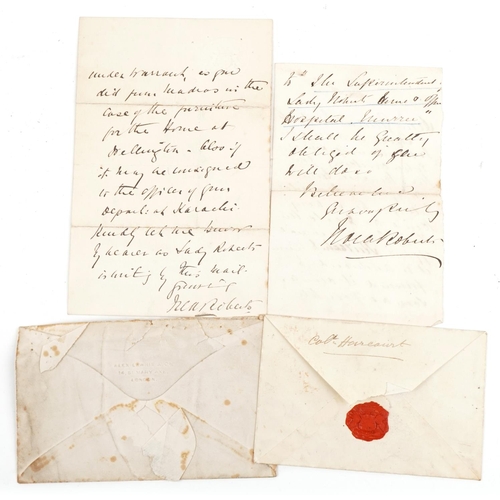 under warrant, as you
did from Madras in the
case of the furniture
for the Home at
Wellington - Also if
it may be consigned
to the officer of your
Depart: at Karachi
Kindly let me know
by bearer as Lady Roberts
is writing by this mail.
Roberts
To The Superintendent
Lady Roberts Home &
Hospital Murree"
I shall be greatly
obliged if you
will do so
Believe me
Yours
Nora Roberts
Harcourt